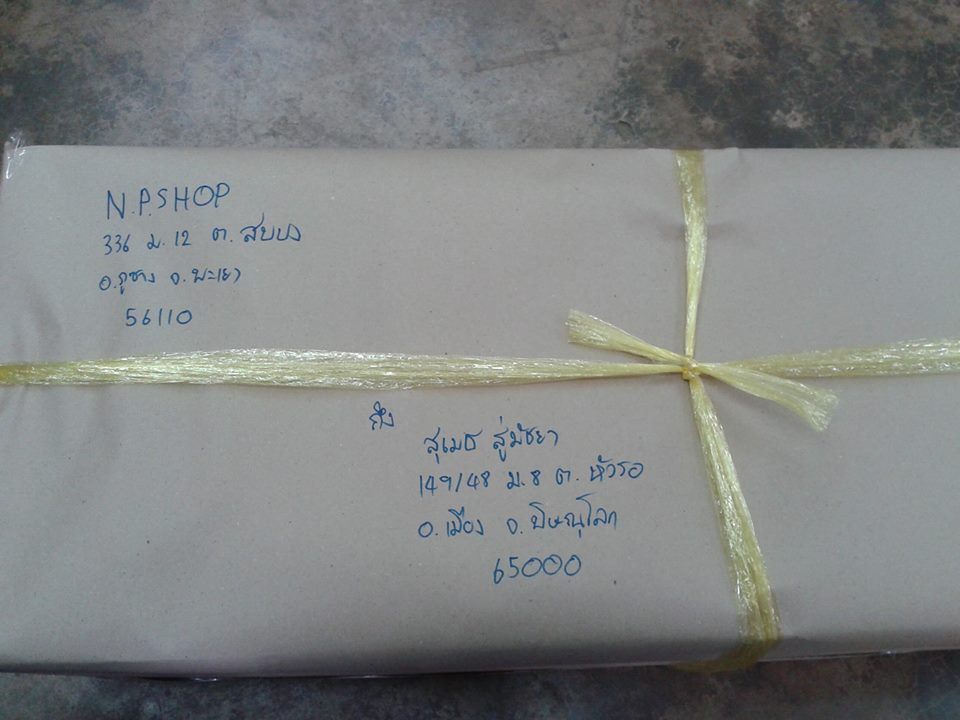 N.P.SHOP
336 ม. 12 ต. สบบง
อ.ภูซาง จ.พะเยา
56110
ถึง
สุเมธ สู่มัชยา
149/48 ม.8 ต. หัวรอ
อ.เมือง จ.พิษณุโลก
65000